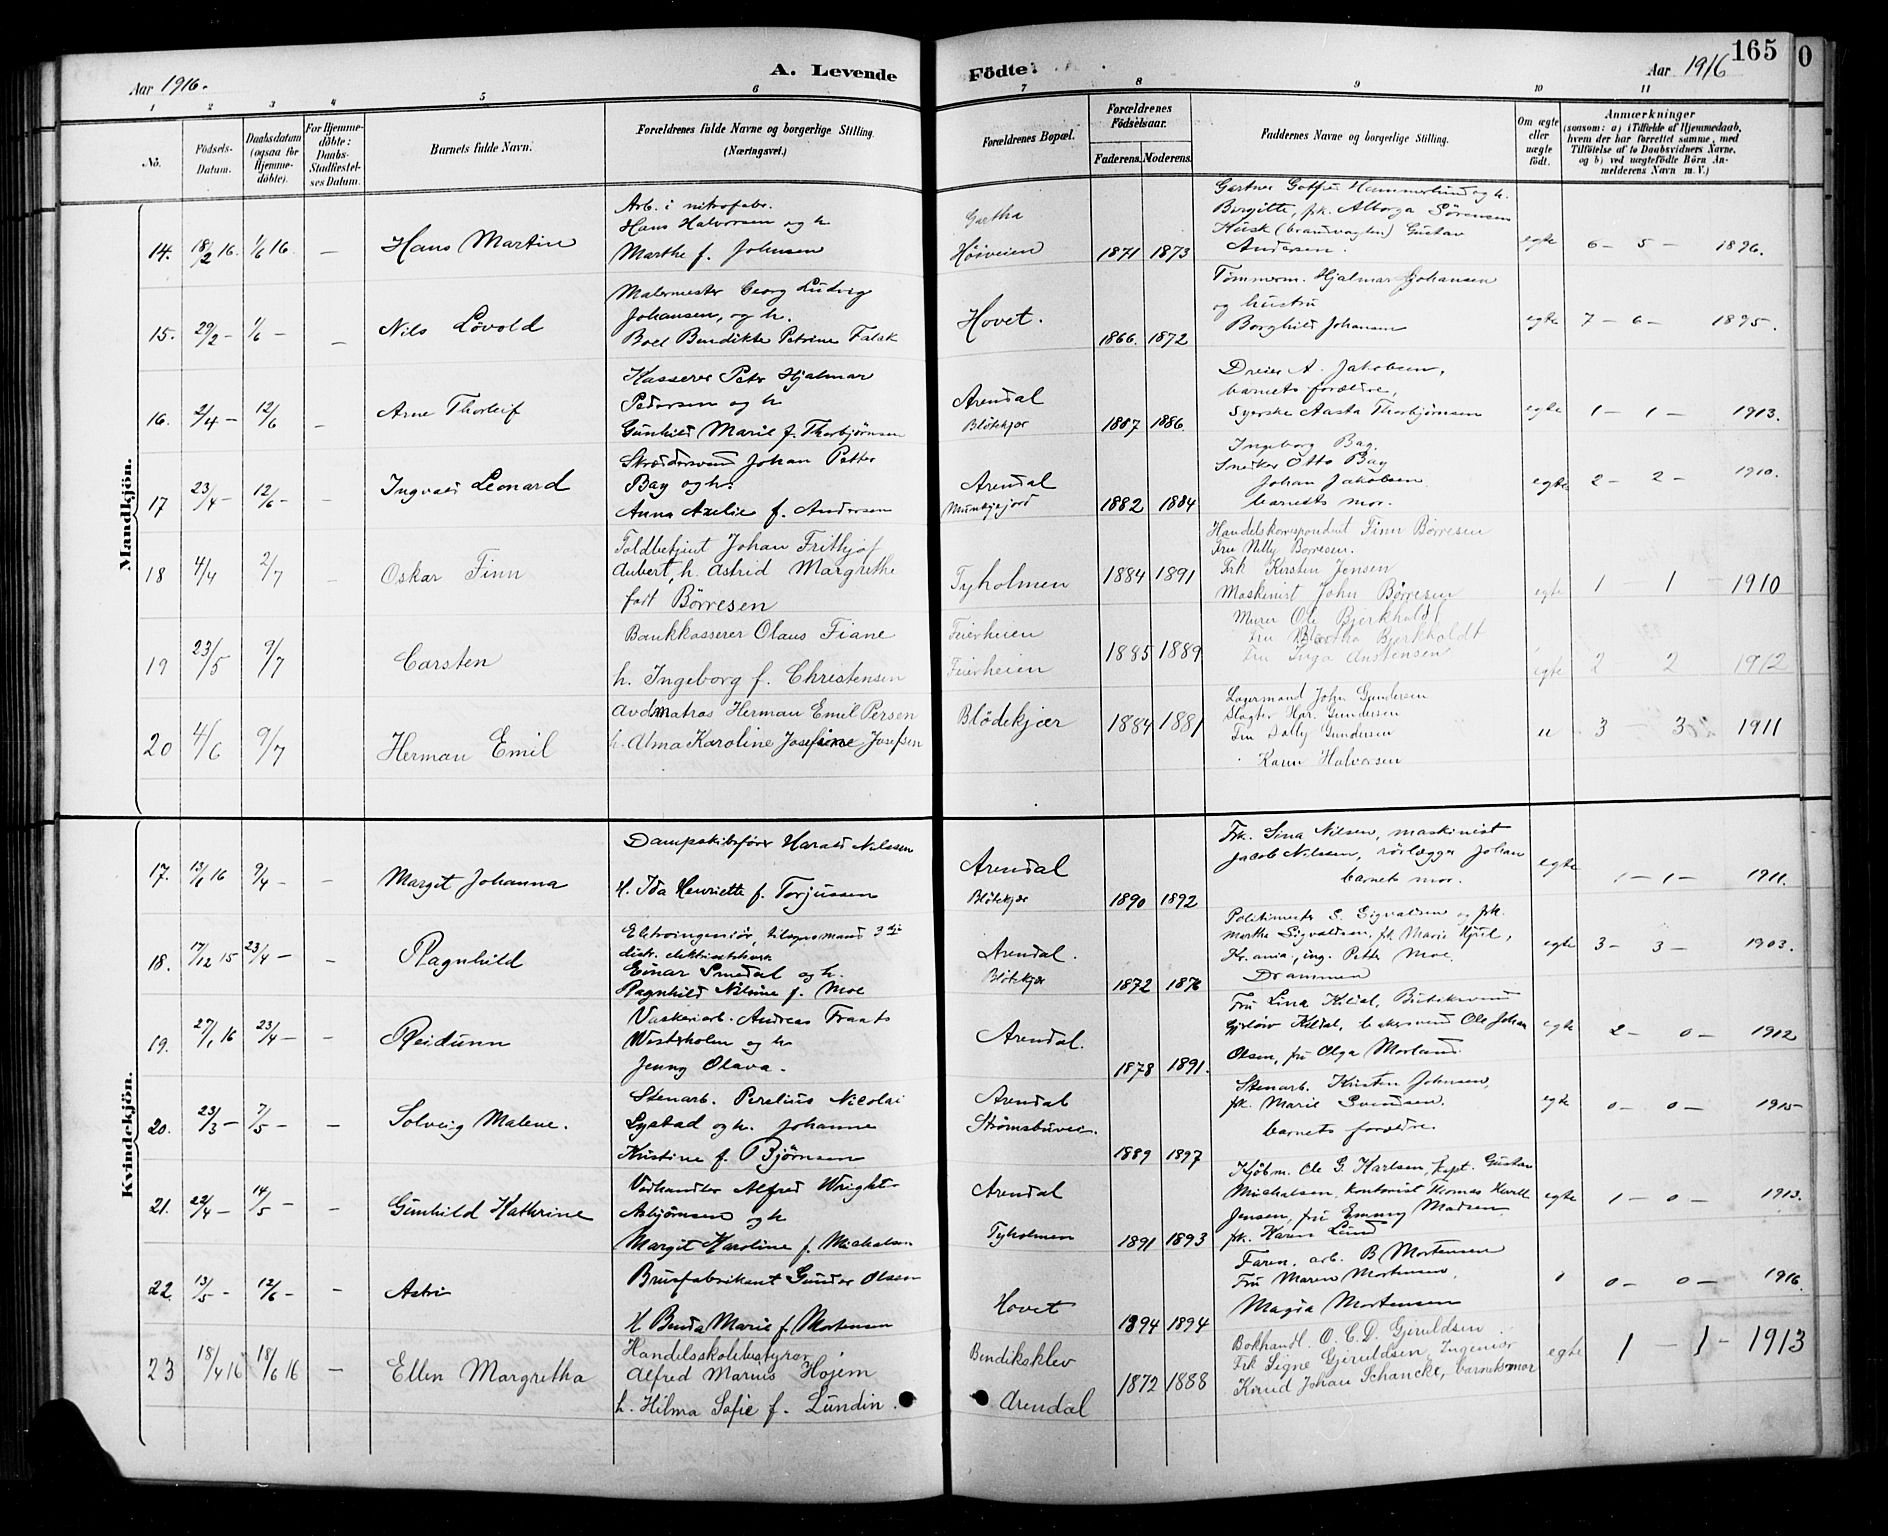 165
0
Aar 1916.
A. Levende Födte.
Aar 1916
1 2 3 4 5 6 7 8 9 10 11
No.
Födsels-Datum.
Daabsdatum (ogsaa for Hjemme-döbte).
For Hjemme-döbte: Daabs-Stadfæstel-ses Datum.
Barnets fulde Navn.
Forældrenes fulde Navne og borgerlige Stilling. (Næringsvei.)
Forældrenes Bopæl.
Forældrenes Födselsaar.
Faderens. Moderens.
Faddernes Navne og borgerlige Stilling.
Om ægte eller uægte födt.
Anmærkninger
(saasom: a) i Tilfælde af Hjemmedaab, hvem der har forrettet samme, med Tilföielse af to Daabsvidners Navne, og b) ved uægtefödte Börn An-melderens Navn m. V.)
Mandkjön.
14. 18/2 16. 1/6 16. — Hans Martin
Arb. i nitrofabr.
Hans Halvorsen og h.
Marthe f. Johnsen
Høiveien
1871 1873
Gartner Hammerlund og h.
Birgitte, frk. Alborga Sørensen
Gustav
Andersen.
egte 6 — 5 — 1896.
15. 29/2 — 1/6 — — Nils Løvold
Malermester Georg Ludvig
Johansen, og h.
Boel Bendikte Petrine Falck
Hovet.
1866. 1872
Tømmerm. Hjalmar Johansen
og hustru
Borghild Johansen
egte 7 — 6 — 1895.
16. 2/4 — 12/6 — Arne Thorleif
Kasserer Peter Hjalmar
Pedersen og h
Gunhild Marie f. Thorbjørnsen
Arendal
Bløtekjær
1887 1886.
Dreier A. Jakobsen,
barnets forældre,
Syerske Aasta Thorbjørnsen
egte 1 — 1 — 1913.
17 23/4 — 12/6 — — Ingvald Leonard
Skræddersvend Johan Petter
Bay og h.
Anna Axelie f. Andersen
Arendal
Munkejord
1882 1884
Ingeborg Bay.
Snekker Otto Bay
Johan Jakobsen
barnets mor.
egte 2 — 2 — 1910.
18 4/4 2/7 — Oskar Finn
Toldbetjent Johan Frithjof
Aubert, h. Astrid Margrethe
født Børresen
Tyholmen
1884 1891
Handelskorrespondent Finn Børresen
Fru Nelly Børresen.
Frk Kirsten Jensen
Maskinist John Børresen
egte 1 — 1 1910
19 23/5 9/7 Carsten
Bankkasserer Olaus Fiane
h. Ingeborg f. Christensen
Feierheien
Feierheien
1885 1889
Murer Ole Bjerkholdt
Fru Bertha Bjerkholdt
Fru Inga Anstensen
egte 2 — 2 1912
20 4/6 9/7 Herman Emil
Avdmatros Herman Emil Persen
h. Alma Karoline Josefine Josefsen
Blødekjær
1884 1881
Lagermand John Gundersen
Slagter Gundersen
Fru Dolly Gundersen
Karen Halvorsen
" 3 — 3 1911
Kvindekjön.
17. 13/1 16 9/4 — — Margit Johanna
Dampskibsfører Harald Nilssen
H. Ida Henriette f. Torjussen
Arendal
Bløtekjær
1890 1892
Frk. Sina Nilsen, maskinist
Jacob Nilssen, rørlægger Johan
barnets mor.
egte 1 — 1 — 1911.
18. 17/12 15 23/4 — — Ragnhild
Elektroingeniør, tilsynsmand 3die
distr. elektricitetsverk
Einar Smedal og h.
Ragnhild Nilsine f. Moe
Arendal.
Bløtekjær
1872 1876
Politimester S. Sigvaldsen og frk.
Marthe Sigvaldsen, frk Marie Kjøl,
Kr.ania, ing. Petter Moe
Drammen
egte 3 — 3 — 1903.
19. 27/1 16 23/4 — — Reidunn
Vaskeriarb. Andreas Fraats
Westerholm og h
Jenny Olava.
Arendal.
1878 1891.
Fru Lina Kildal, Butiksvend
Kildal, bakersvend Ole Johan
Olsen, fru Olga Morland.
egte 2 — 0 — 1912
20. 23/3 — 7/5 — — Solveig Malene.
Stenarb. Perelius Nicolai
Lystad og h. Johanne
Kristine f. Bjørnsen
Arendal
Strømsbuvei.
1889 1897
Stenarb. Kristen Johnsen,
frk. Marie Svendsen.
barnets forældre.
egte 0 — 0 — 1915
21. 22/4 — 14/5 — — Gunhild Kathrine
Vedhandler Alfred Wright
Asbjørnsen og h
Margit Karoline f. Michalsen
Arendal
Tyholmen
1891 1893
Kjøbm. Ole G. Karlsen, kapt. Gustav
Michalsen, kontorist Thomas
Jensen, fru Emmy Madsen
frk. Karen Lund
egte 1 — 0 — 1913.
22. 13/5 — 12/6 — — Astri
Brusfabrikant Gunder Olsen
H Benda Marie f. Mortensen
Hovet
1894 1894
Faren. arb. B Mortensen
Fru Maren Mortensen,
Magda Mortensen
0 — 0 — 1916.
23 18/4 16 18/6 16 — Ellen Margretha
Handelsskolebestyrer
Alfred Marius Høiem
h. Hilma Sofie f. Lundin.
Bendiksklev
Arendal
1872 1888
Bokhandl. O. C. D. Gjeruldsen
Frk Signe Gjeruldsen, Ingeniør
Knud Johan Schancke, barnets mor
egte 1 — 1 — 1913